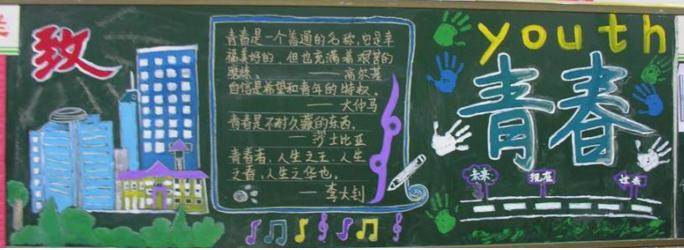 致
青春是一个普通的名称,它是幸
福美好的,但也充满着艰苦的
磨练。 ——高尔基
自信是希望和青年的特权。
——大仲马
青春是不耐久藏的东西。
——莎士比亚
青春者,人生之王,人生
之春,人生之华也。
——李大钊
youth
青春
未来 现在 过去